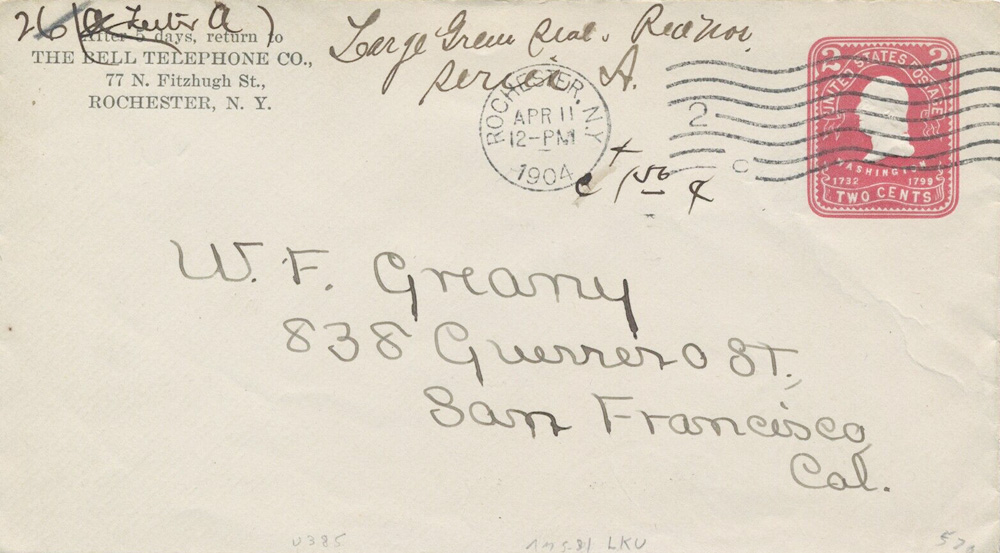 26 (
After 5 days, return to
THE BELL TELEPHONE CO.,
77 N. Fitzhugh St.,
ROCHESTER, N. Y.
Large Green
A.
ROCHESTER, N.Y.
APR 11
12-PM
1904
2
C
2 2
UNITED STATES POSTAGE
WASHINGTON
1732 1799
TWO CENTS
W. F. Greany
838 Guerrero St.,
San Francisco,
Cal.
U385
LKU